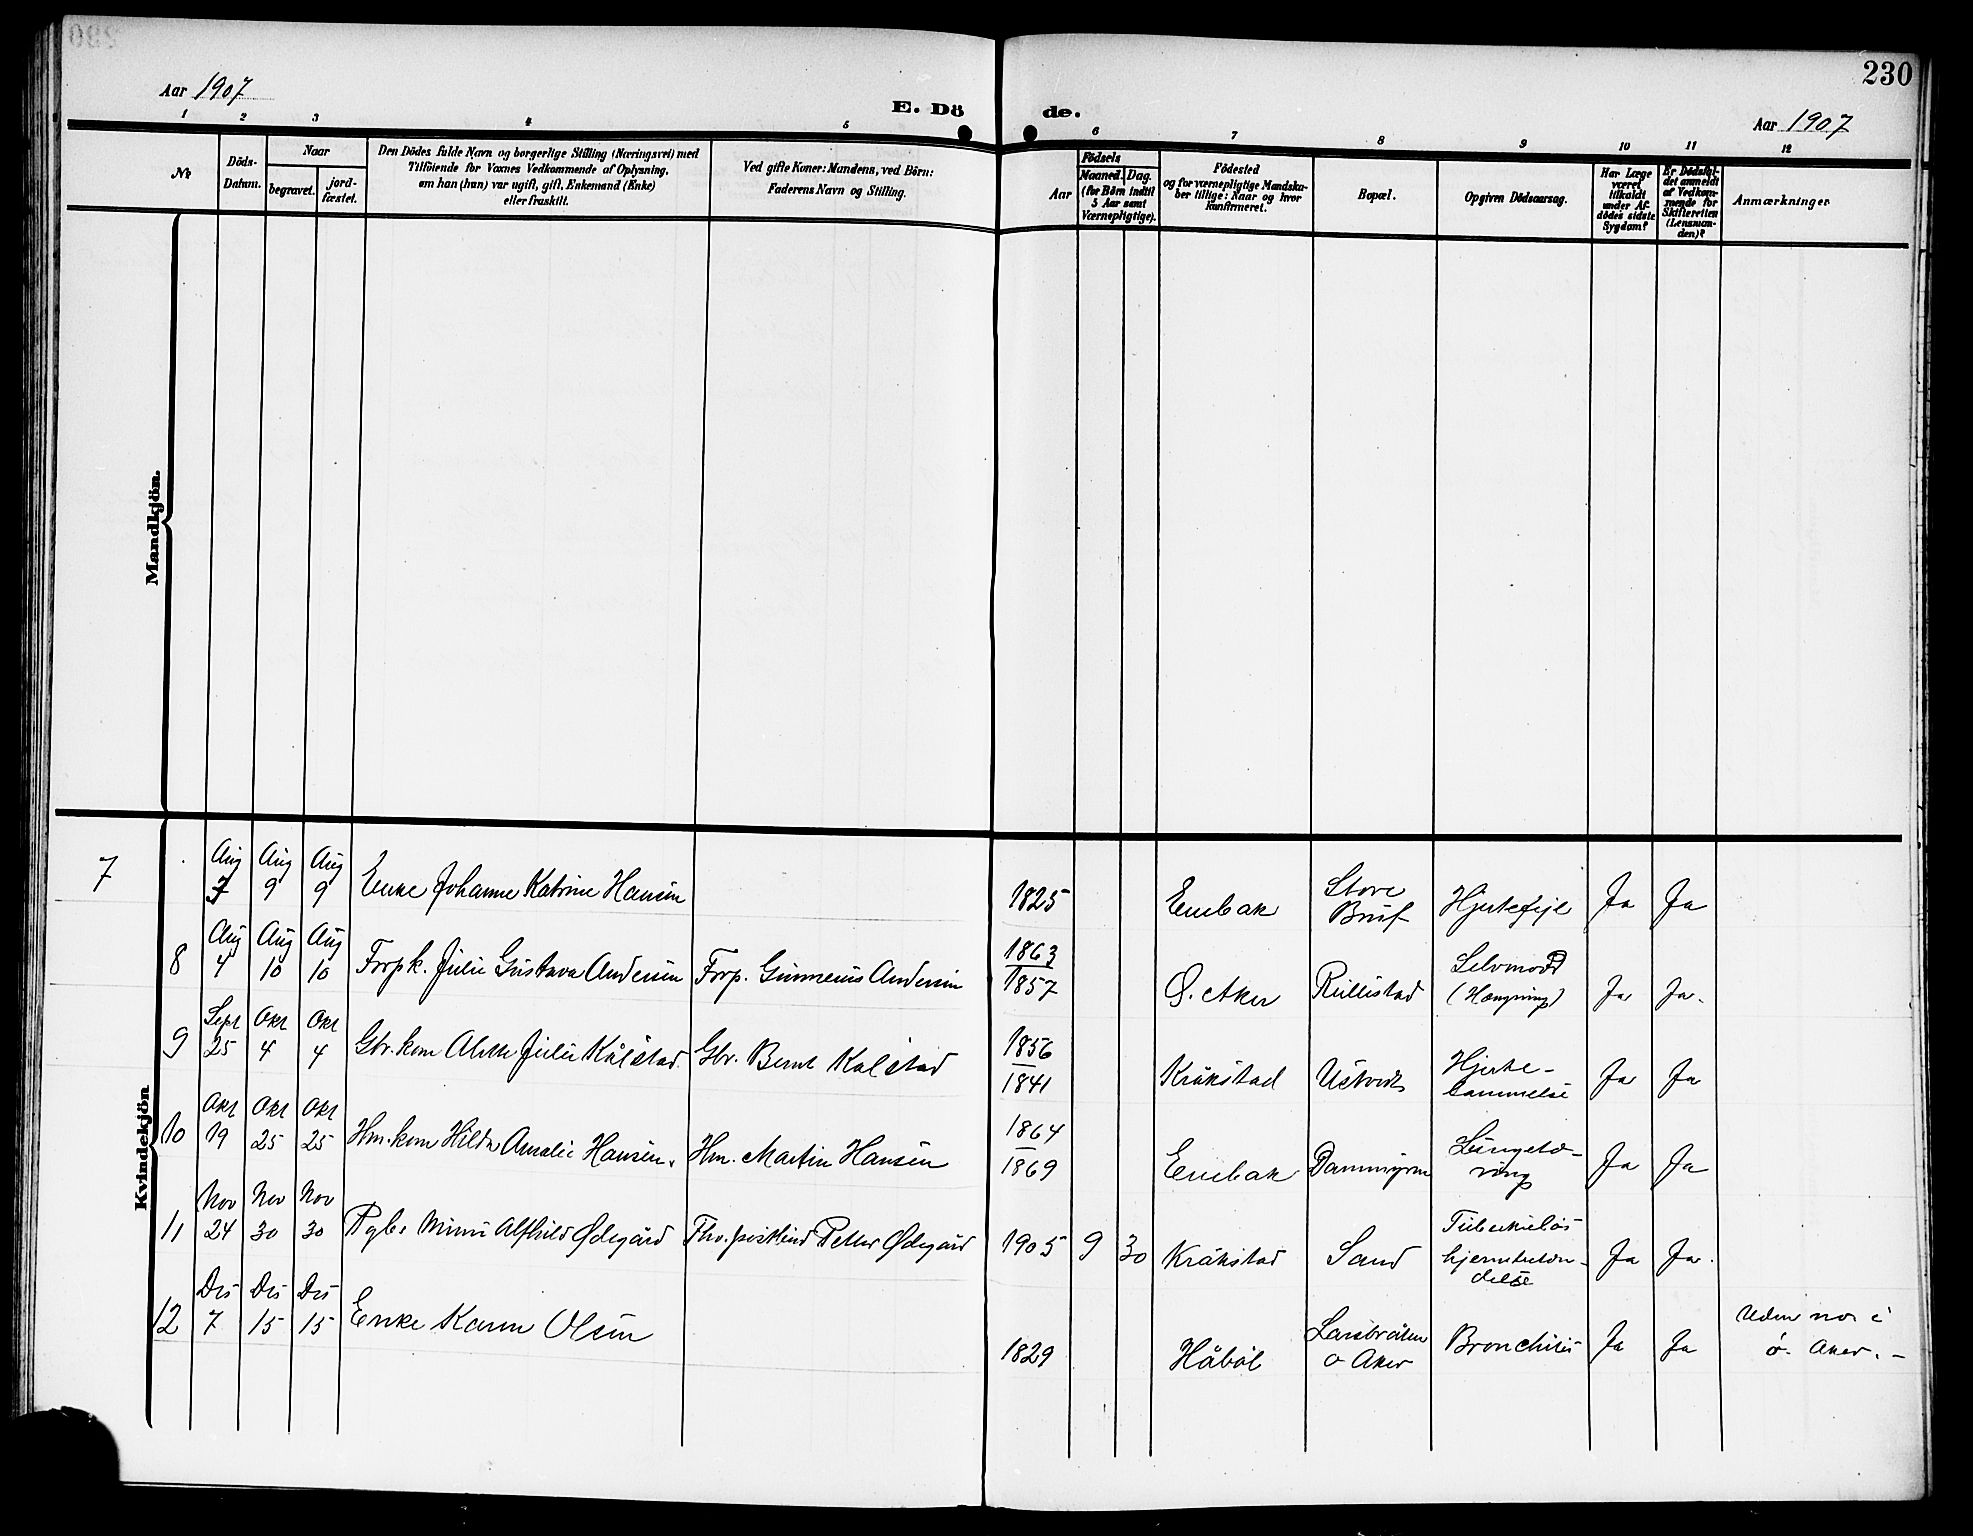 230
Aar 1907
E. Dö de.
Aar 1907
1 2 3 4 5 6 7 8 9 10 11 12
No
Döds-
Datum.
Naar
begravet.
jord-
fæstet.
Den Dödes fulde Navn og borgerlige Stilling (Næringsvei) med
Tilföiende for Voxnes Vedkommende af Oplysning,
om han (hun) var ugift, gift, Enkemand (Enke)
eller fraskilt.
Ved gifte Koner: Mandens, ved Börn:
Faderens Navn og Stilling.
Födsels
Aar
Maaned.
Dag.
(for Börn indtil
5 Aar samt
Værnepligtige).
Födested
og for værnepligtige Mandska-
ber tillige: Naar og hvor
konfirmeret.
Bopæl.
Opgiven Dödsaarsag.
Har Læge
været
tilkaldt
under Af-
dödes sidste
Sygdom?
Er Dödsfal-
det anmeldt
af Vedkom-
mende for
Skifteretten
(Lensman-
den)?
Anmærkninger
Mandkjön.
Kvindekjön
7 Aug 7 Aug 9 Aug 9 Enke Johanne Katrine Hansen 1825 Enebak Store Hjertefeil Ja Ja
8 Aug 4 Aug 10 Aug 10 Forpk. Julie Gustava Andersen Forp. Gunnerius Andersen 1863 1857 Ø. Aker Rullestad Selvmord (Hængning) Ja Ja.
9 Sept 25 Okt 4 Okt 4 Gbr. kone Alette Julie Kålstad. Gbr. Bernt Kalstad 1856 1841 Kråkstad Hjerte-
lammelse Ja Ja
10 Okt 19 Okt 25 Okt 25 Hm. kone Hilda Amalie Hansen. Hm. Martin Hansen 1864 1869 Enebak Dammyren Lungetæ-
ring Ja Ja
11 Nov 24 Nov 30 Nov 30 Pgb. Minni Alfhild Ødegård Fhv. postbud Petter Ødegård 1905 9 30 Kråkstad Sand Tuberkuløs
hjernebetæn-
delse Ja Ja.
12 Des 7 Des 15 Des 15 Enke Karen Olsen 1829 Håbøl Larsbråten
ø Aker Bronchitis Ja Ja Uden no. i
ø. Aker. -